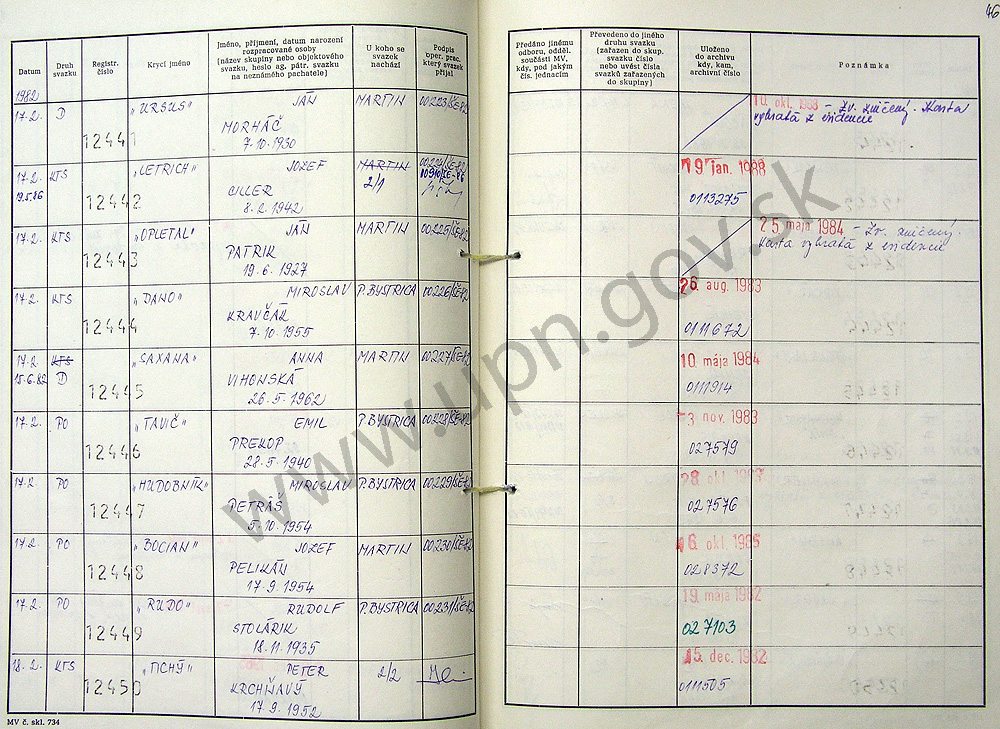 46
Datum
Druh svazku
Registr. číslo
Krycí jméno
Jméno, příjmení, datum narození
rozpracované osoby
(název skupiny nebo objektového
svazku, heslo ag. pátr. svazku
na neznámého pachatele)
U koho se
svazek
nachází
Podpis
oper. prac.
který svazek
přijal
Předáno jinému
odboru, odděl.
součásti MV,
kdy, pod jakým
čís. jednacím
Převedeno do jiného
druhu svazku
(zařazen do skup.
svazku číslo
nebo uvést čísla
svazků zařazených
do skupiny)
Uloženo
do archivu
kdy, kam,
archivní číslo
Poznámka
1982
17.2. D 12441 „URSUS" JÁN MARTIN 00223/ŠE-82 10. okt. 1988 – Zv. zničený. Karta
MORHÁČ vybratá z evidencie
7.10.1930
17.2. KTS 12442 „LETRICH" JOZEF MARTIN 19. jan. 1988
19.5.86 2/1 00910/ŠE-86
CILLER 0113275
8.2.1942
17.2. KTS 12443 „OPLETAL" JÁN MARTIN 00225/ŠE-82 25. mája 1984 – Zv. zničený.
PATRIK Karta vybratá z evidencie
19.6.1927
17.2. KTS 12444 „DANO" MIROSLAV P. BYSTRICA 00226/ŠE-82 26. aug. 1983
KRAVČÁK 0111672
7.10.1955
17.2. KTS 12445 „SAXANA" ANNA MARTIN 00227/ŠE-82 10. mája 1984
15.6.82 D VIHONSKÁ 0111914
26.5.1962
17.2. PO 12446 „TAVIČ" EMIL P. BYSTRICA 00228/ŠE-82 3 nov. 1983
PREKOP 027579
28.5.1940
17.2 PO 12447 „HUDOBNÍK" MIROSLAV P. BYSTRICA 00229/ŠE-82 28 okt.
PETRÁŠ 027576
5.10.1954
17.2. PO 12448 „BOCIAN" JOZEF MARTIN 00230/ŠE-82 16. okt. 1985
PELIKÁN 028372
17.9.1954
17.2. PO 12449 „RUDO" RUDOLF P. BYSTRICA 00231/ŠE-82 19. mája 1982
STOLÁRIK 027103
18.11.1935
18.2. KTS 12450 „TICHÝ" PETER 2/2 15. dec. 1982
KRCHŇAVÝ 0111505
17.9.1952
MV č. skl. 734
www.upn.gov.sk